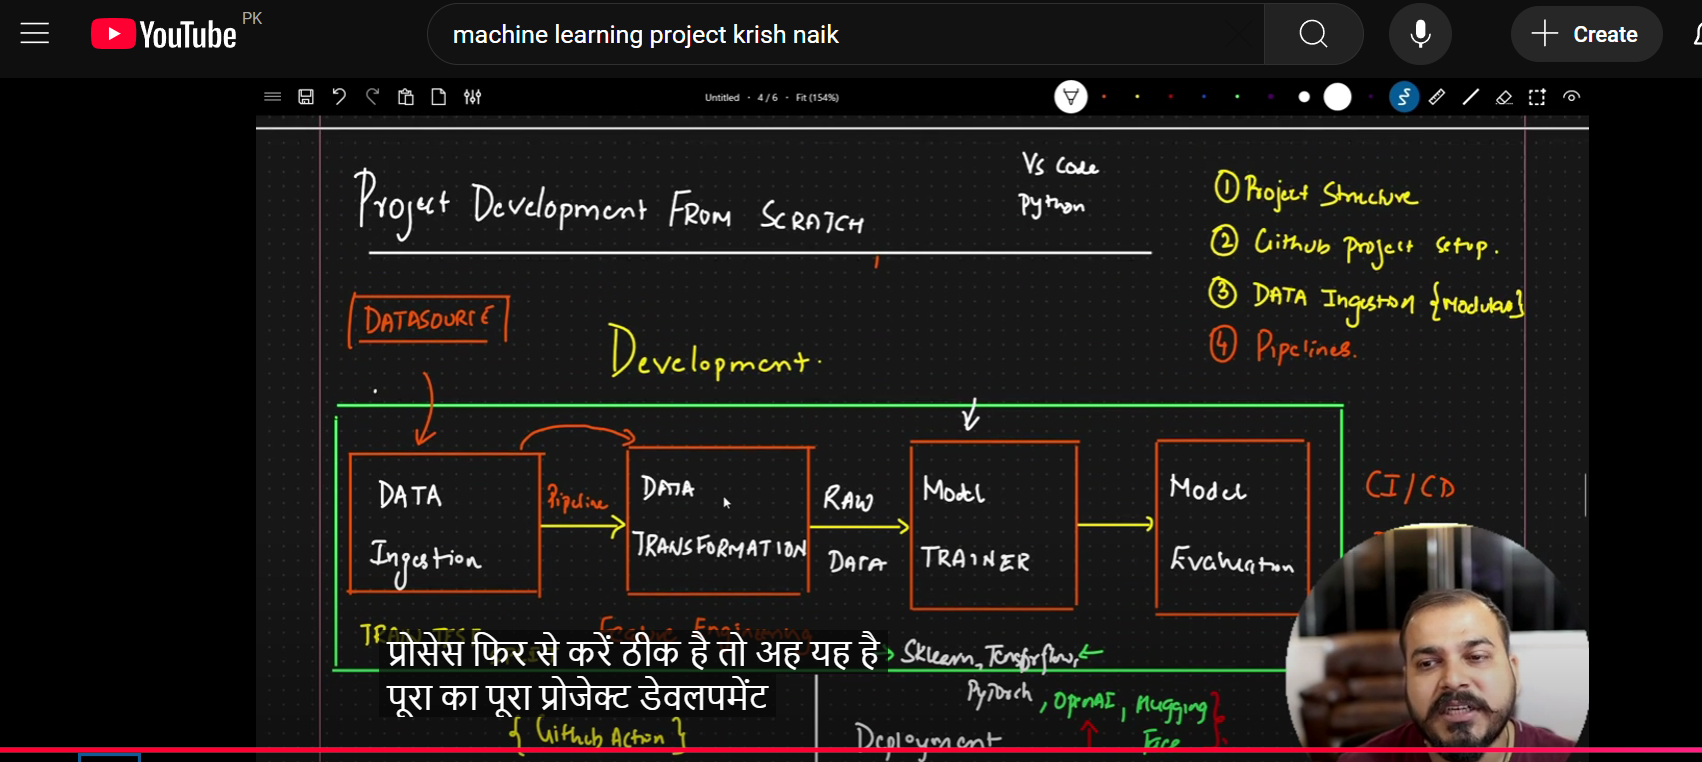 YouTube PK
machine learning project krish naik
Create
Untitled • 4 / 6 • Fit (154%)
Project Development FROM SCRATCH
Vs Code
Python
① Project Structure
② Github project setup.
③ DATA Ingestion {Modular}
④ Pipelines.
DATASOURCE
Development.
DATA
Ingestion
Pipeline
DATA
TRANSFORMATION
RAW
DATA
Model
TRAINER
Model
Evaluation
CI/CD
TRAIN TEST
Feature Engineering
Sklearn, Tensorflow,
PyTorch, OpenAI, Hugging
Face
प्रोसेस फिर से करें ठीक है तो अह यह है
पूरा का पूरा प्रोजेक्ट डेवलपमेंट
{ Github Action }
Deployment